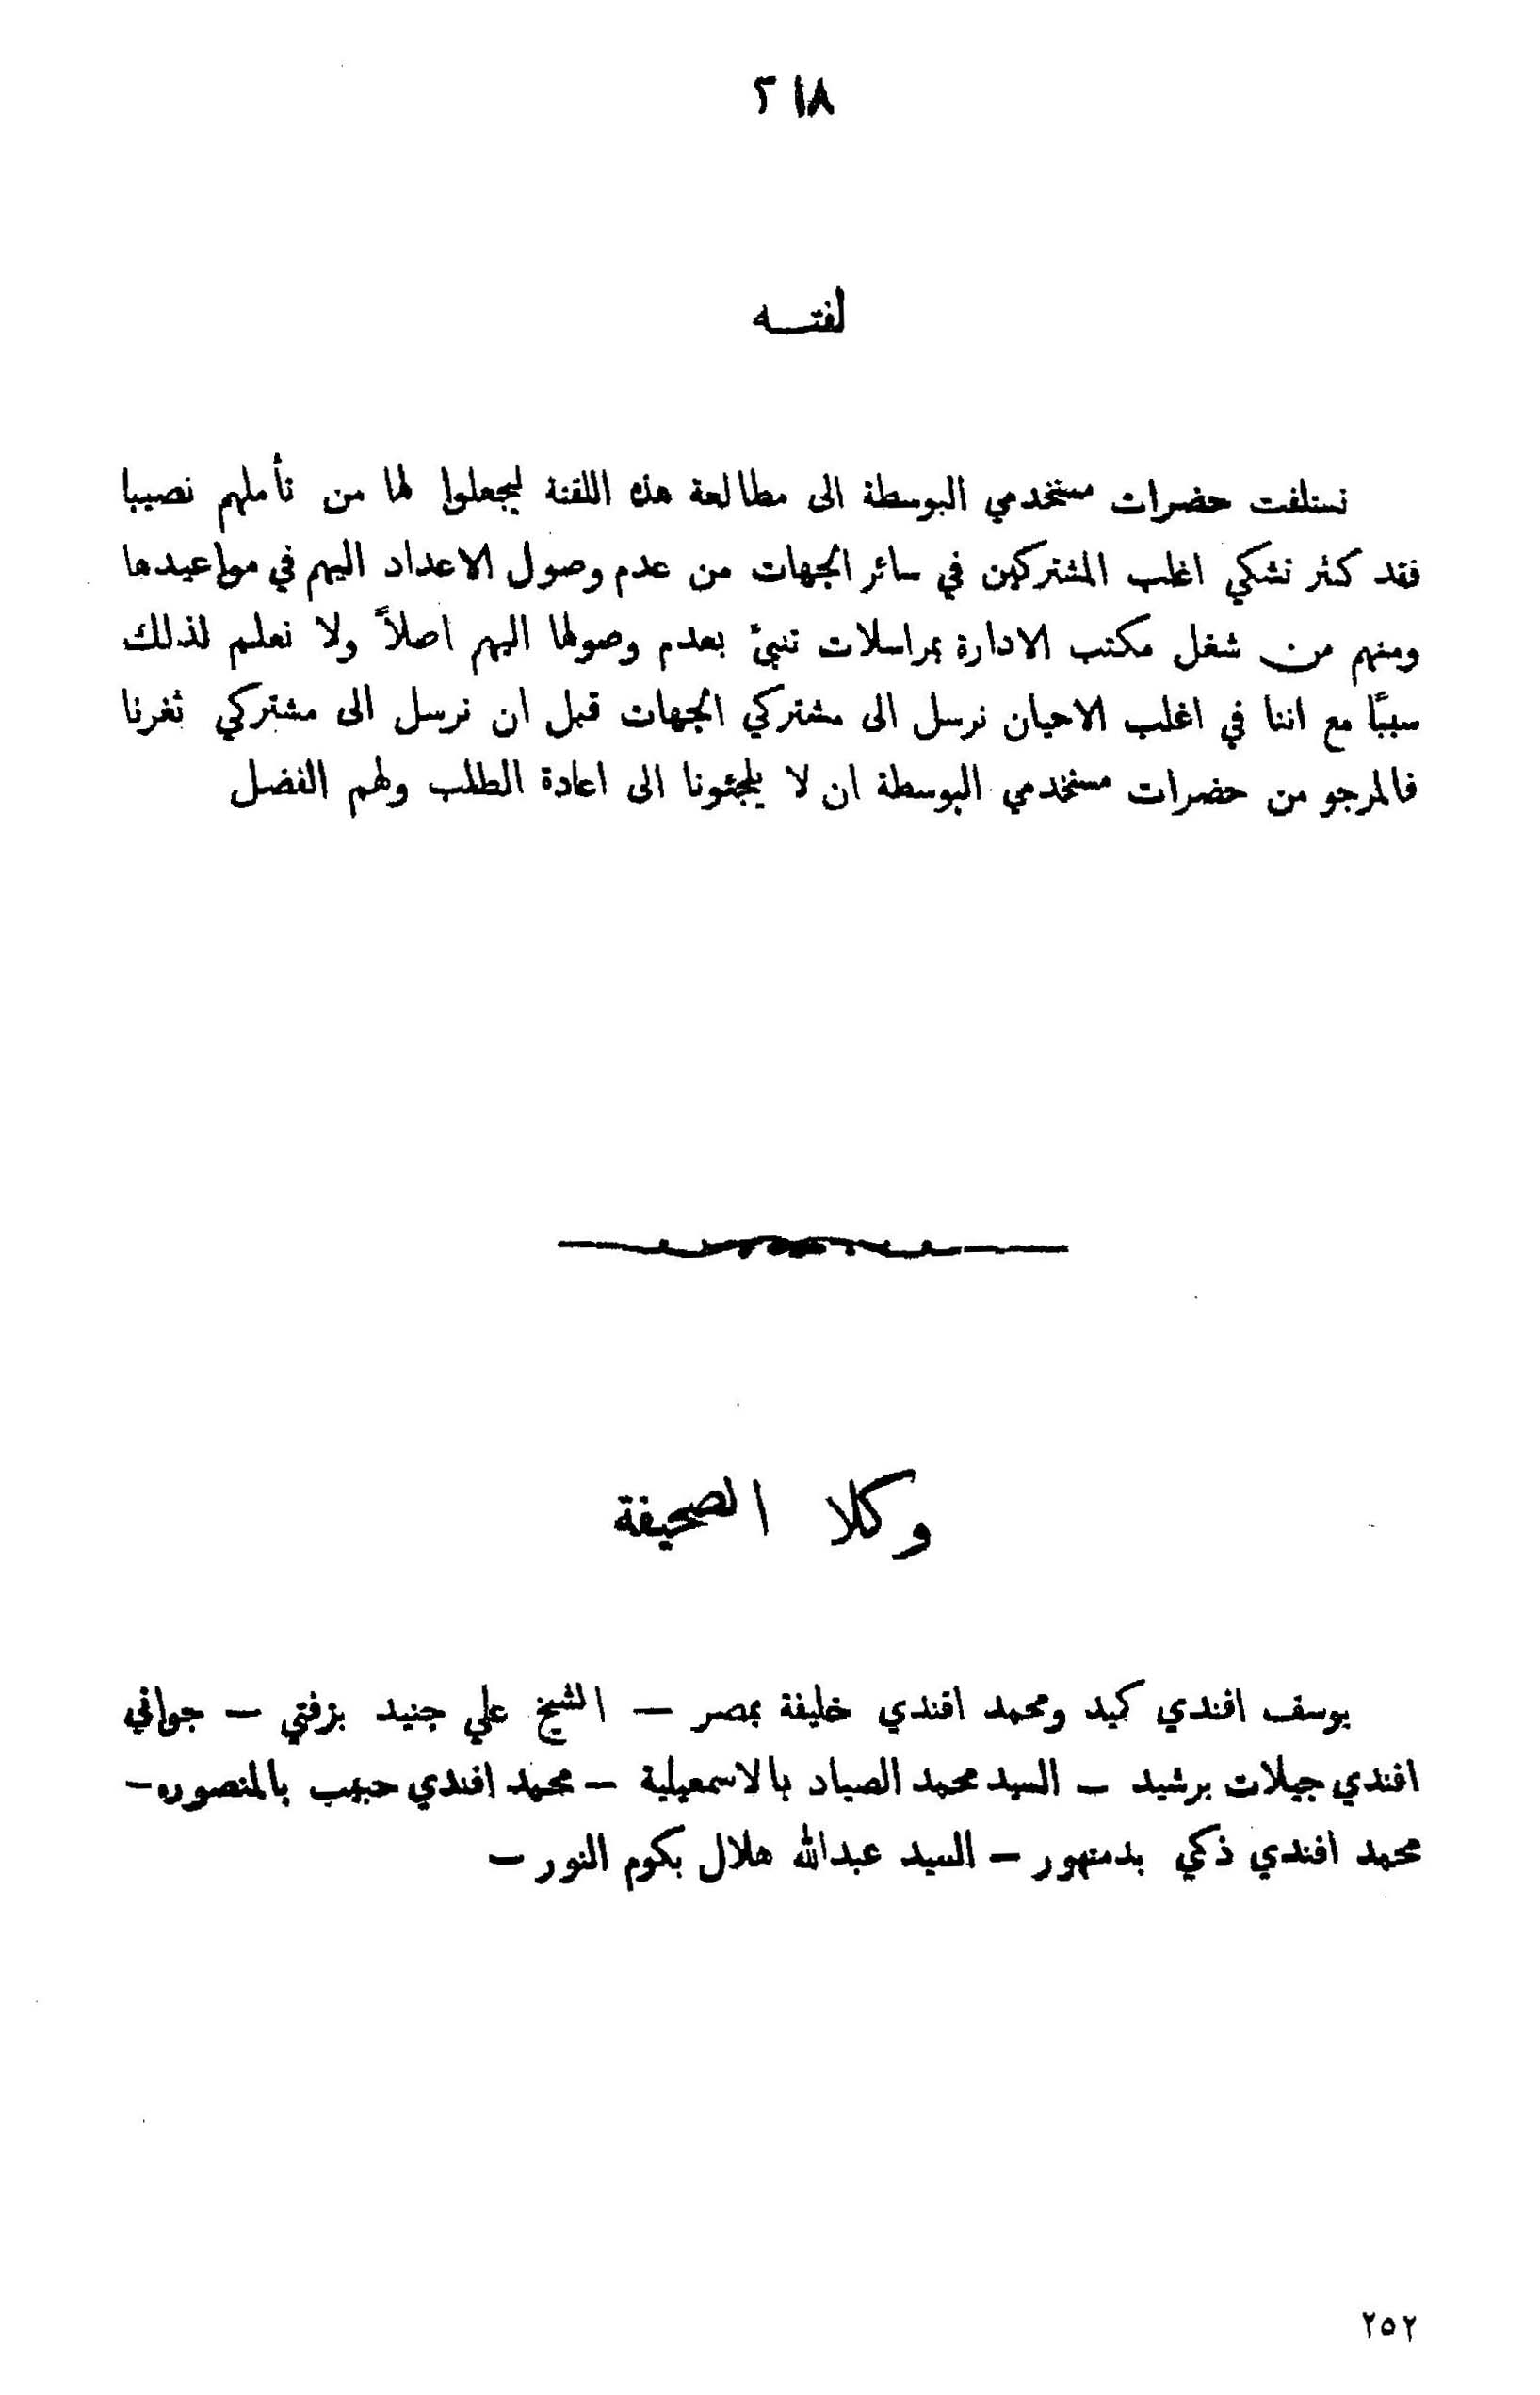 ٢١٨
لفتـــه
نستلفت حضرات مستخدمي البوسطة الى مطالعة هذه اللفتة ليجعلوا لها من تأملهم نصيبا
فقد كثر تشكي اغلب المشتركين في سائر الجهات من عدم وصول الاعداد اليهم في مواعيدها
ومنهم من شغل مكتب الادارة بمراسلات تنبئ بعدم وصولها اليهم اصلاً ولا نعلم لذلك
سببًا مع اننا في اغلب الاحيان نرسل الى مشتركي الجهات قبل ان نرسل الى مشتركي ثغرنا
فالمرجو من حضرات مستخدمي البوسطة ان لا يلجئونا الى اعادة الطلب ولهم الفضل
وكلا الصحيفة
يوسف افندي كيد ومحمد افندي خليفة بمصر — الشيخ علي جنيد بزفتي — جواني
افندي جيلات برشيد — السيد محمد الصياد بالاسمعيلية — محمد افندي حبيب بالمنصوره —
محمد افندي ذكي بدمنهور — السيد عبدالله هلال بكوم النور —
٢٥٢